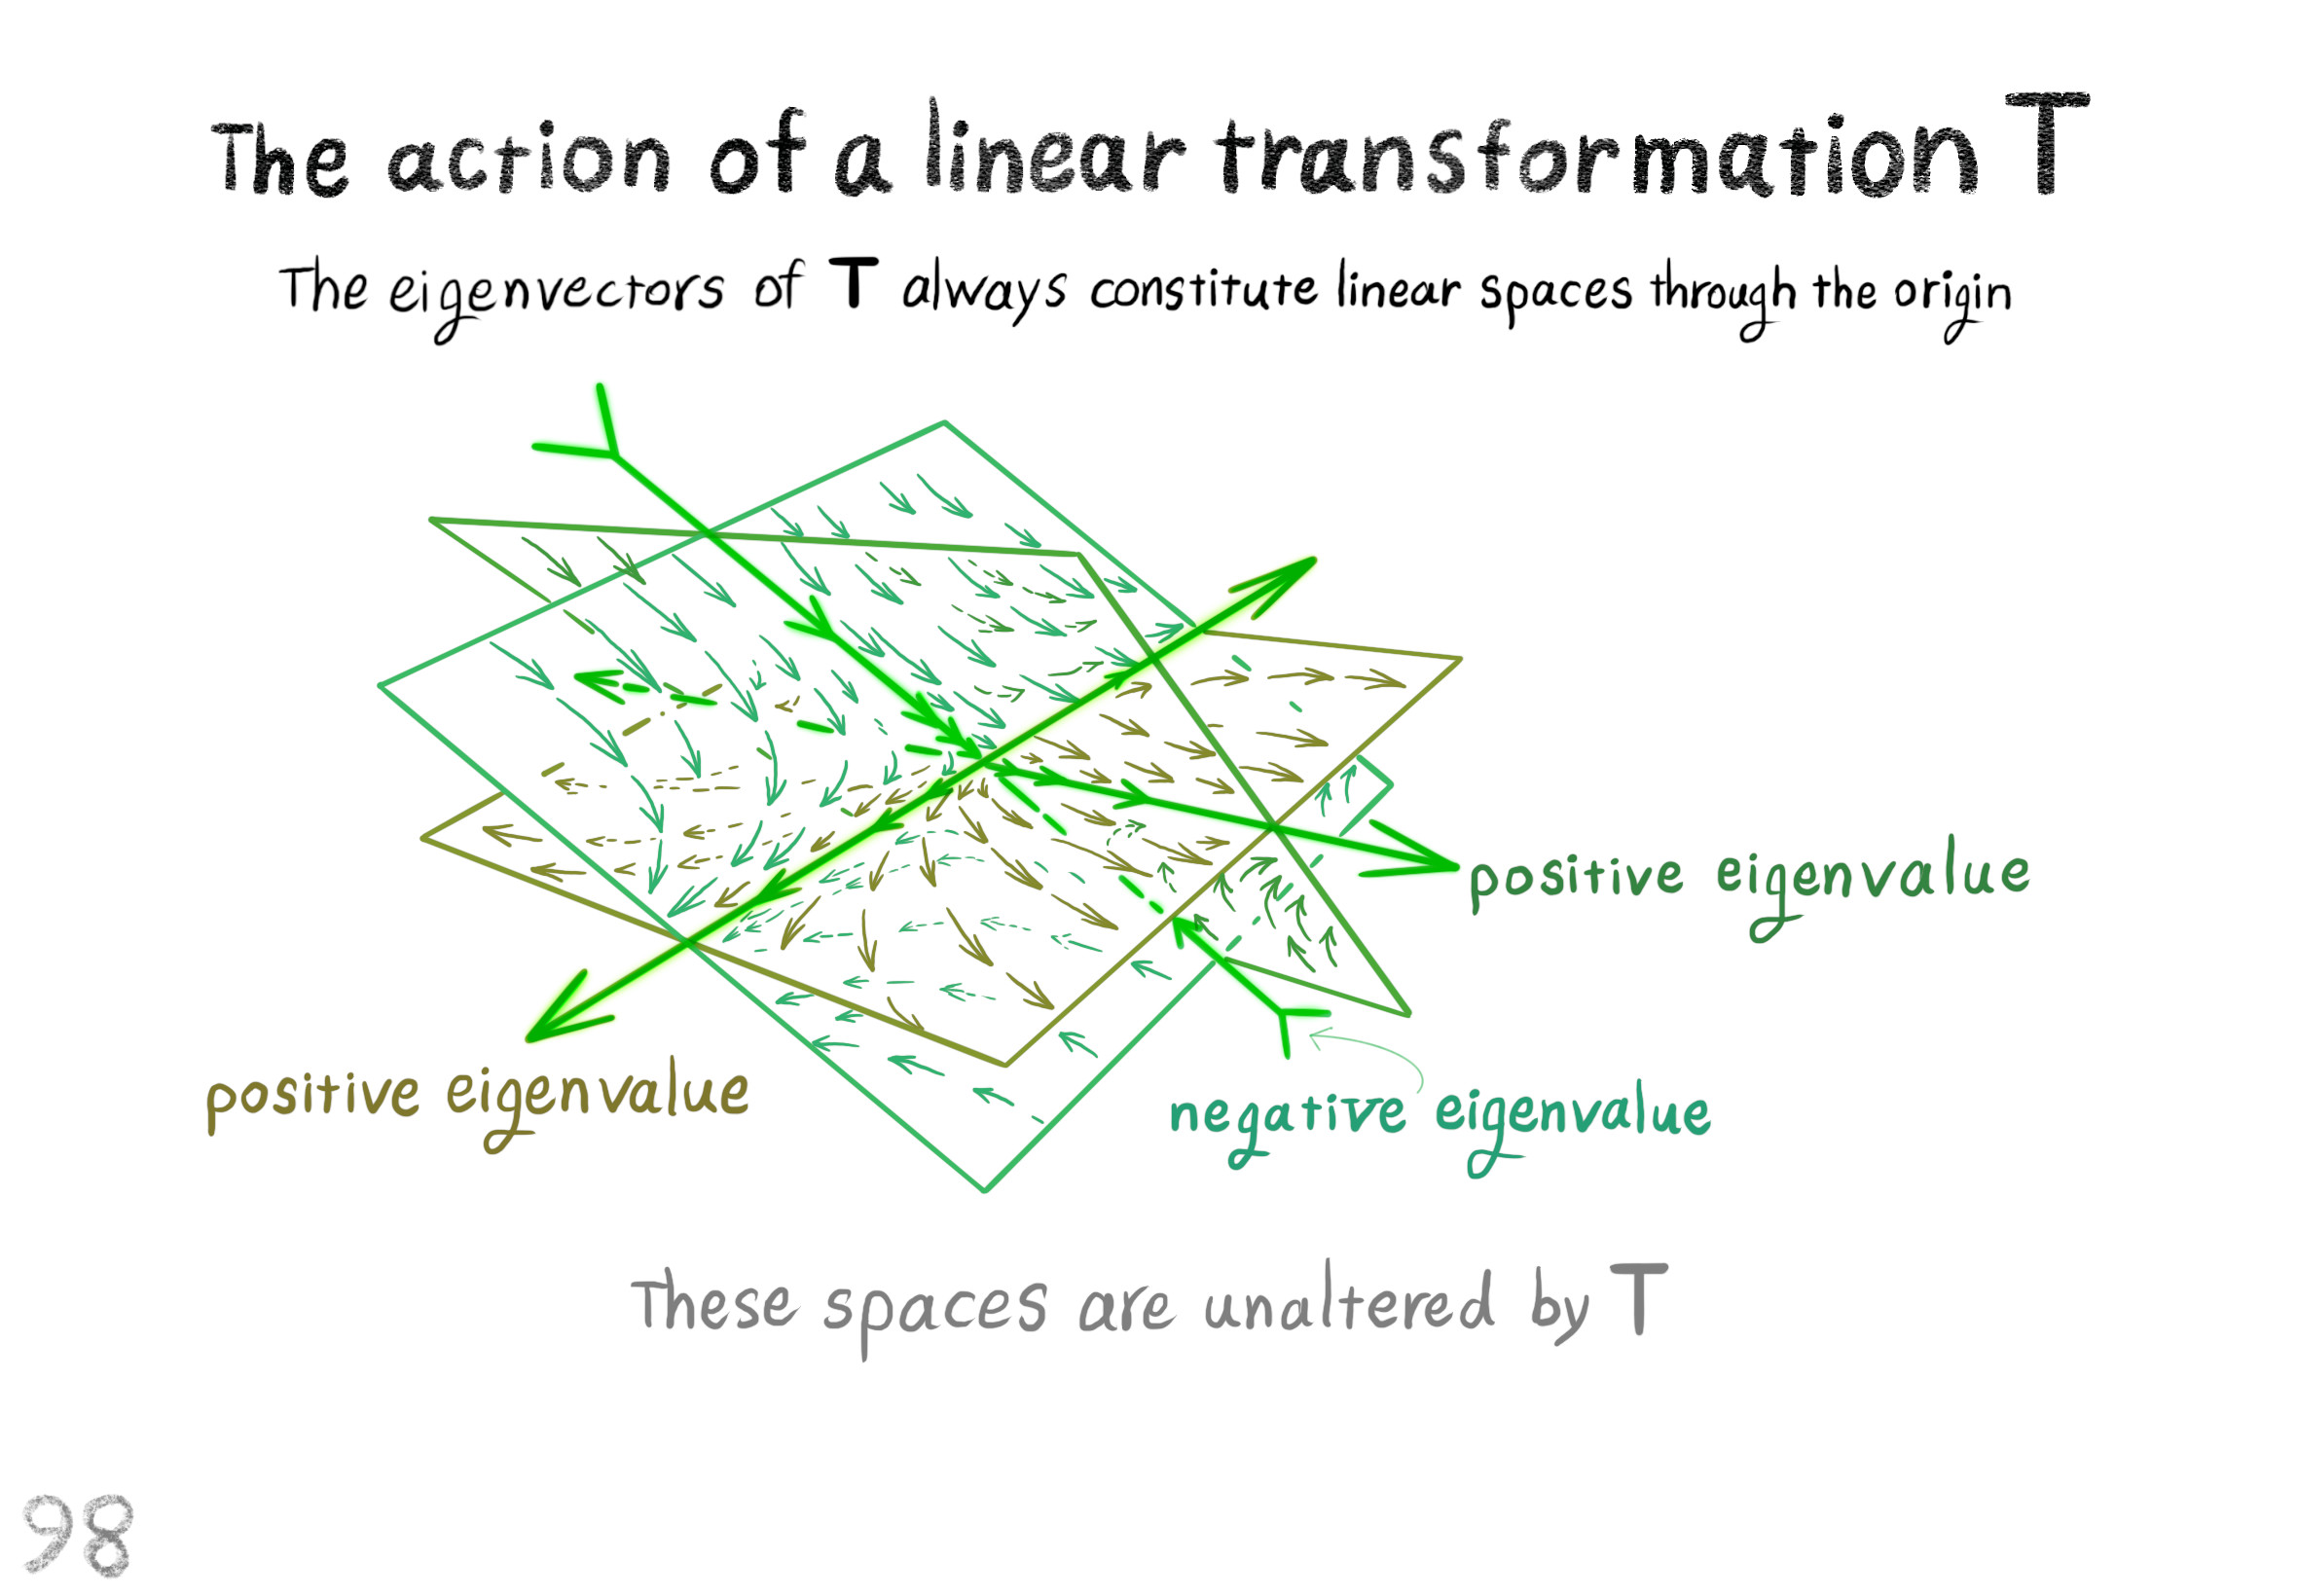 The action of a linear transformation T
The eigenvectors of T always constitute linear spaces through the origin
positive eigenvalue
positive eigenvalue
negative eigenvalue
These spaces are unaltered by T
98